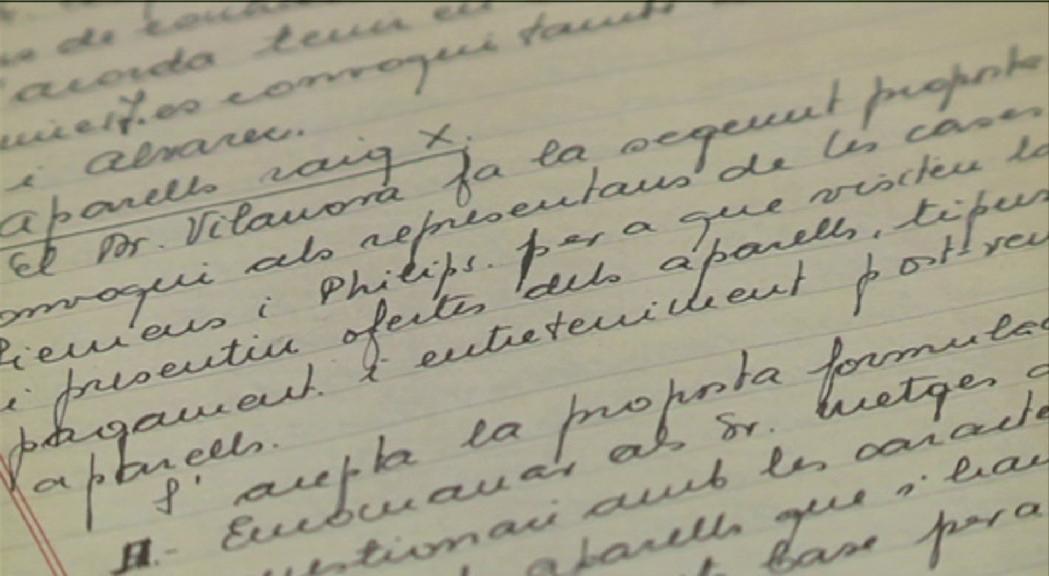 acorda tenir en
convoqui també
i Alvarez.
Aparells raig X.
El Dr. Vilanova fa la seguent proposta
convoqui als representans de les cases
Siemens i Philips. per a que visiten
i presentin ofertes dels aparells, tipus
pagament i enteteniment post-
aparells.
S' acepta la proposta
Encomanar als Sr. metges
amb les
aparells que s'
base per a